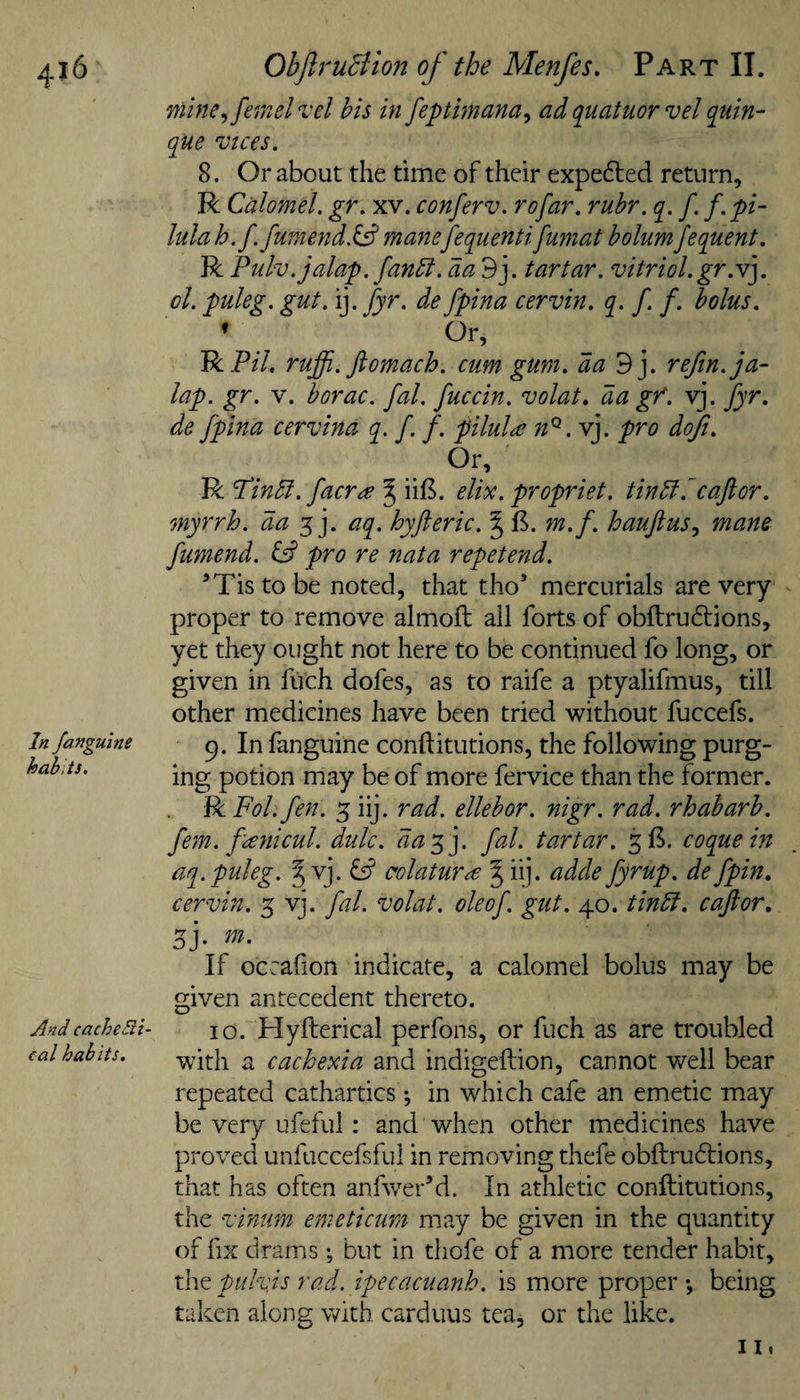 416 Obſtruction of the Menſes. PART II.
mine, ſemel vel bis in ſeptimana, ad quatuor vel quin-
que vices.
8. Or about the time of their expected return,
℞ Calomel. gr. xv. conſerv. roſar. rubr. q. ſ. f. pi-
lula h. ſ. ſumend. & mane ſequenti ſumat bolum ſequent.
℞ Pulv. jalap. ſanct. āa ℈j. tartar. vitriol. gr. vj.
ol. puleg. gut. ij. ſyr. de ſpina cervin. q. ſ. f. bolus.
Or,
℞ Pil. ruffi. ſtomach. cum gum. āa ℈j. reſin. ja-
lap. gr. v. borac. ſal. ſuccin. volat. āa gr. vj. ſyr.
de ſpina cervina q. ſ. f. pilulæ nº. vj. pro doſi.
Or,
℞ Tinct. ſacræ ℥ iiß. elix. propriet. tinct. caſtor.
myrrh. āa ʒ j. aq. hyſteric. ℥ ß. m. f. hauſtus, mane
ſumend. & pro re nata repetend.
'Tis to be noted, that tho' mercurials are very
proper to remove almoſt all ſorts of obſtructions,
yet they ought not here to be continued ſo long, or
given in ſuch doſes, as to raiſe a ptyaliſmus, till
other medicines have been tried without ſucceſs.
In ſanguine
habits.
9. In ſanguine conſtitutions, the following purg-
ing potion may be of more ſervice than the former.
℞ Fol. ſen. ʒ iij. rad. ellebor. nigr. rad. rhabarb.
ſem. fœnicul. dulc. āa ʒ j. ſal. tartar. ʒ ß. coque in
aq. puleg. ℥ vj. & colaturæ ℥ iij. adde ſyrup. de ſpin.
cervin. ʒ vj. ſal. volat. oleoſ. gut. 40. tinct. caſtor.
ʒj. m.
If occaſion indicate, a calomel bolus may be
given antecedent thereto.
And cachecti-
cal habits.
10. Hyſterical perſons, or ſuch as are troubled
with a cachexia and indigeſtion, cannot well bear
repeated cathartics; in which caſe an emetic may
be very uſeful: and when other medicines have
proved unſucceſsful in removing theſe obſtructions,
that has often anſwer'd. In athletic conſtitutions,
the vinum emeticum may be given in the quantity
of ſix drams; but in thoſe of a more tender habit,
the pulvis rad. ipecacuanh. is more proper; being
taken along with carduus tea, or the like.
11.